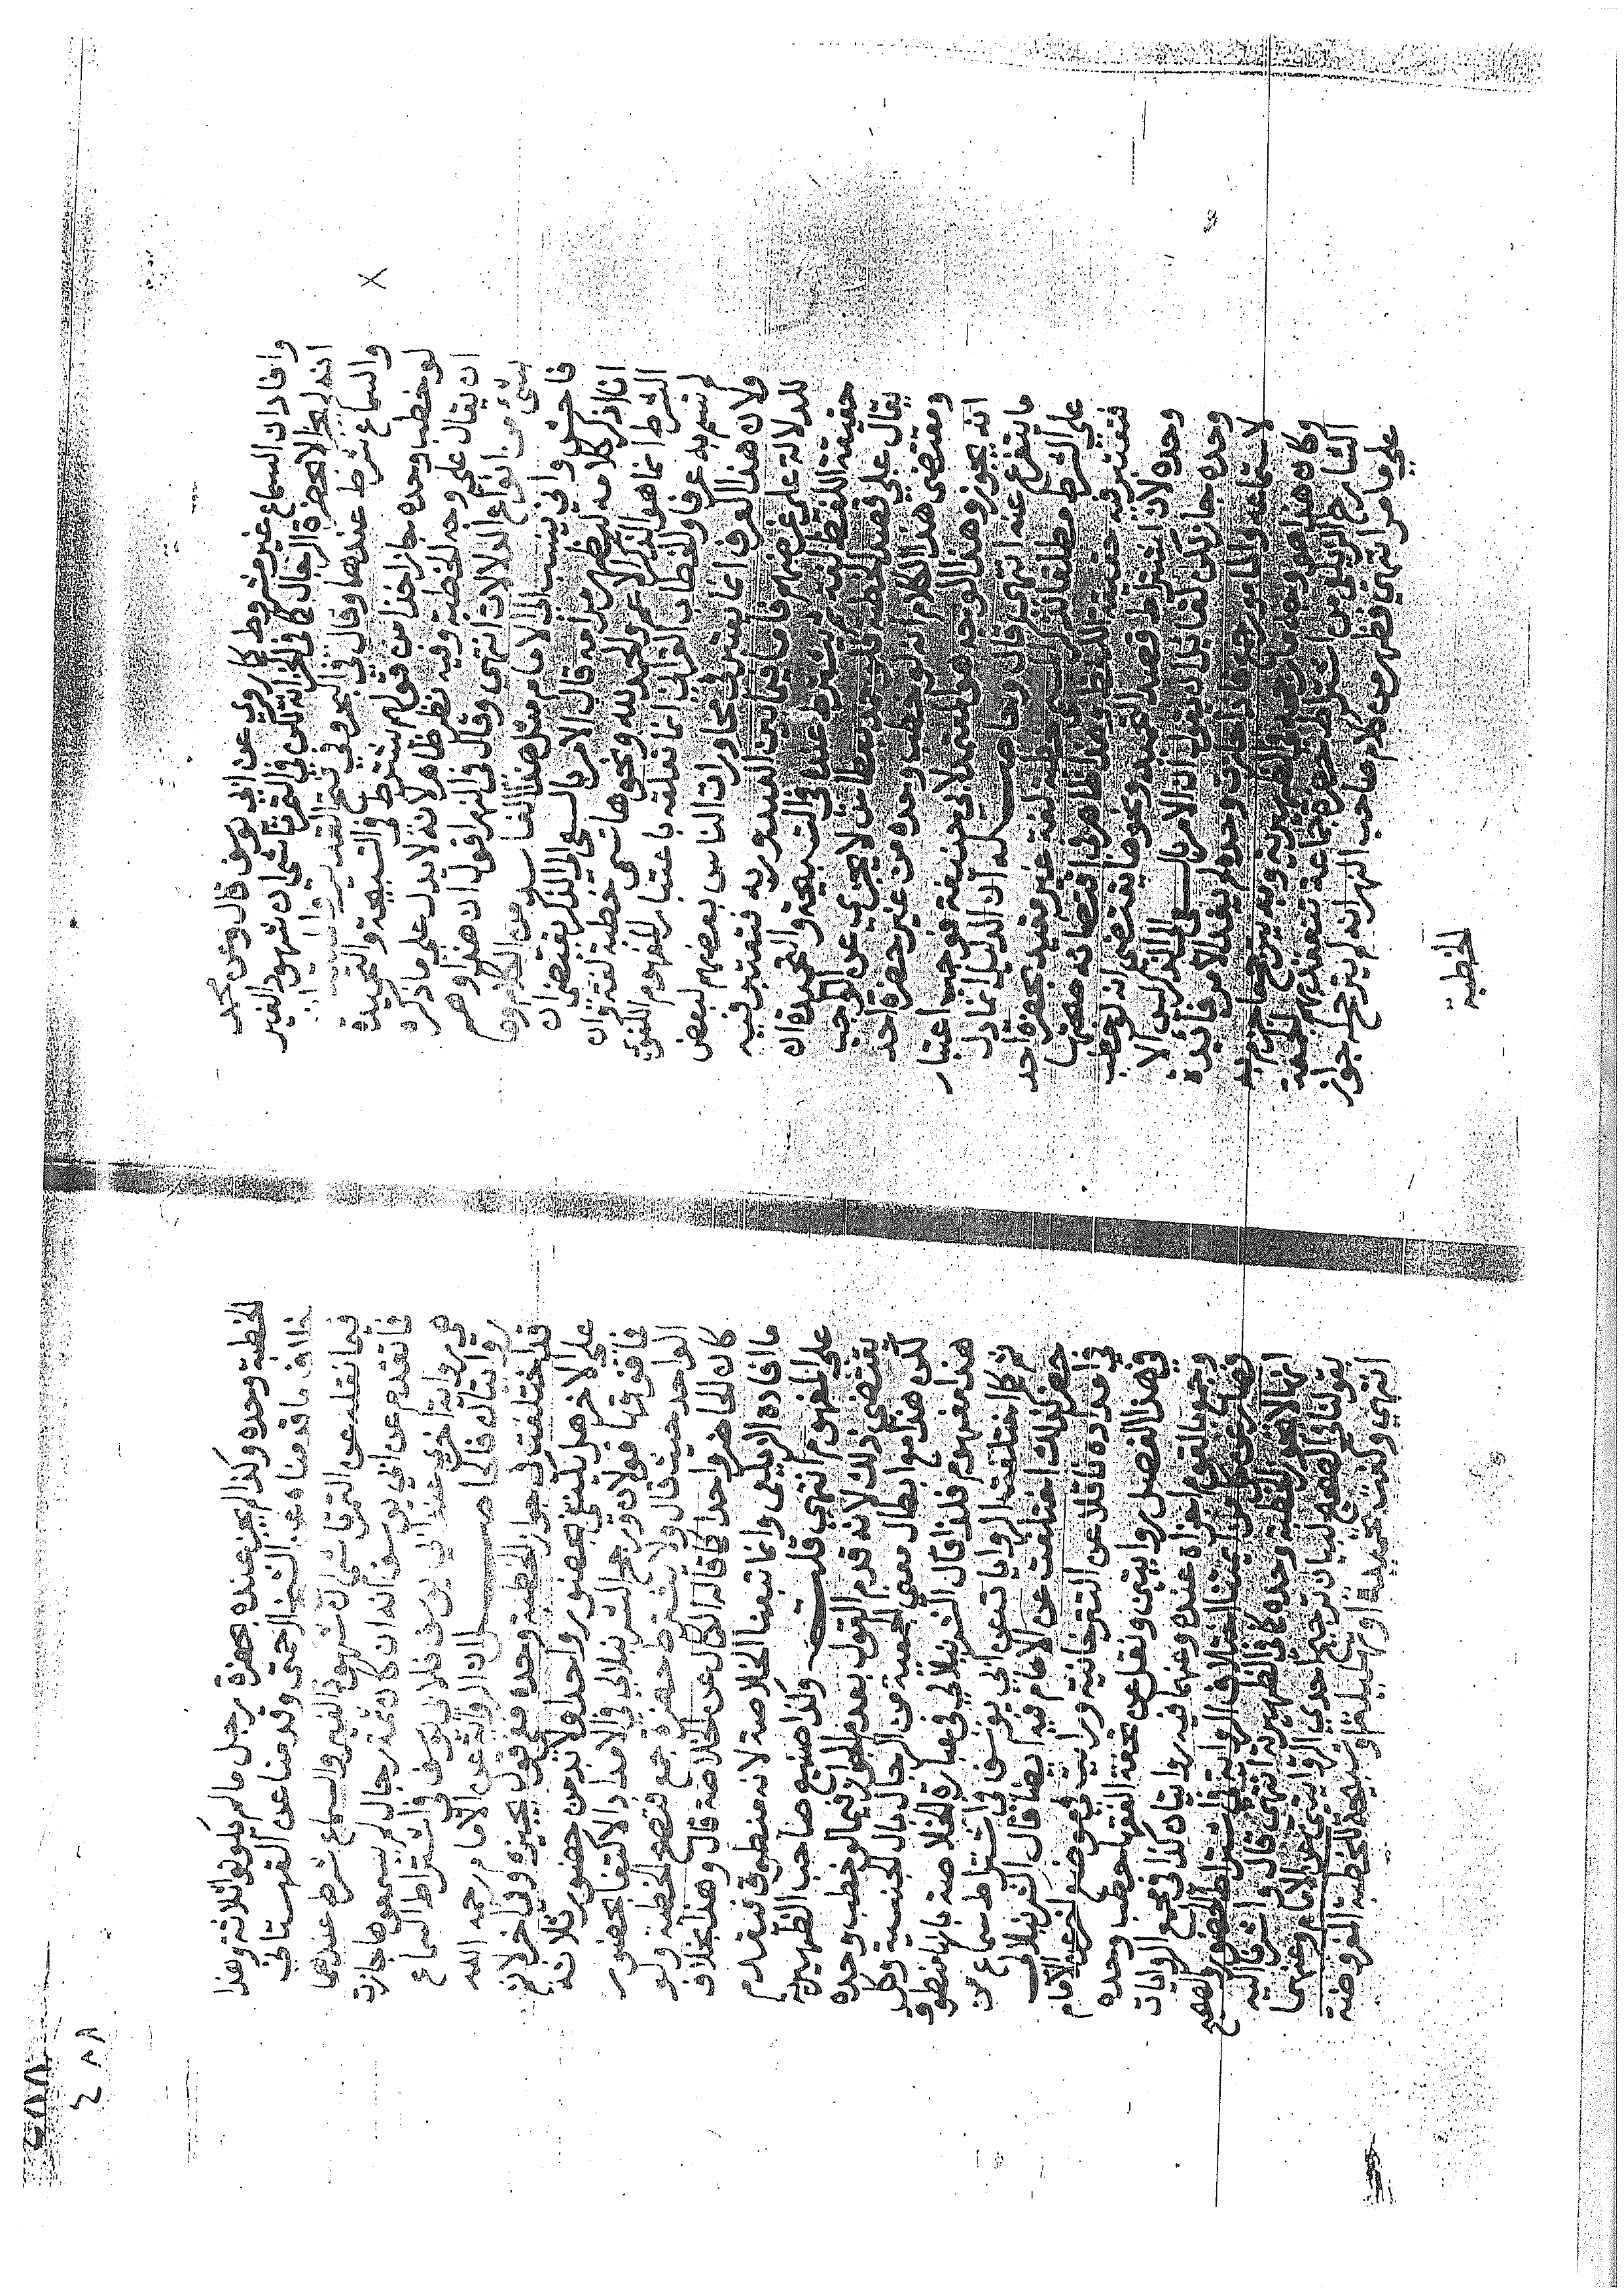 وافاد ان السماع غير مشروط كما روي عن ابي يوسف قال وعن محمد
انه لم يجز الا بحضرة الرجال كما في الخزانة لكن في التمرتاشي ان شهود الغير
والسماع شرط عندهما وقال في البحر وفي فتح القدير
لو خطب وحده جاز اخذا من قولهم يشترط في التسبيحة والتحميدة
ان يقال على وجه الخطبة وفيه نظر ظاهر لانه لا يدل على ما ذكره
بشئ من انواع الدلالات انتهى وقال في النهر اقول ان هذا وهم
فاحش واني ينسب الى الامام مثل هذا الفاسد من الكلام وها
انا اذكر كلامه ليظهر مرامه قال الامر بالسعي الى الذكر يقتضي ان
الشرط انما هو الذكر الاعم والحمد لله ونحوها تسمى خطبة لغة وان
لم تسم به عرفا والخطاب القران انما تعلقه باعتبار المفهوم اللغوي
ولان هذا العرف انما يعتبر في محاورات الناس بعضهم لبعض
للدلالة على غرضهم فاما فيما بين العبد وربه فتعتبر فيه
حقيقة اللفظ لغة ثم يشترط عنده في التسبيحة والتحميدة ان
يقال على قصد الخطبة فلو حمد لعطاس لا يجزي عن الواجب
ومقتضى هذا الكلام انه لو خطب وحده من غير حضرة احد
انه يجوز وهذا الوجه هو المعتمد لابي حنيفة فوجب اعتبار
ما يتفرع عنه انتهى قال وحاصله ان الدليل انما دل
على الشرط مطلقا لذكر المسمى خطبة لغة غير مقيد بحضرة احد
فتعتبر فيه حقيقة اللفظ وهذا ظاهر في اقتضائه صحتها
وحده لان اشتراط قصد التحميد ونحوها يقتضي انه لو خطب
وحده جاز لكن لقائل ان يقول ان الامر بالسعي الى الذكر ليس الا
لاستماعه والمامور جمع فاذا جازت وحده لم يفد الامر فائدته
وكان هذا هو وجه ما رجحه في الظهيرية وبه يترجح ما جزم به
الشارح الزيلعي من اشتراط حضرة جماعة تنعقد بهم الجمعة
على ما مر انتهى فظهر من كلام صاحب النهر انه لم يترجح له جواز
الخطبة
الخطبة وحده وكذا لم يجز عنده بحضرة رجل ما لم يكونوا ثلاثة وهذا
خلاف ما قدمناه عن الشيخ الرحمتي وقدمنا عن القهستاني
فيما نقله عن التمرتاشي ان شهود الغير والسماع شرط عندهما
فاتقدم عن ابي يوسف انه ان كان ثمة رجال لم يسمعوها جازت
هي رواية اخرى عن ابي يوسف فلابي يوسف في اشتراط السماع
روايتان فالحاصل ان الرواية عن الامام رحمه الله
قد اختلفت في جواز الخطبة وحده ففي قول يجيزه وفي اخر لا ثم
على الاخر هل يكتفي بحضور واحد او لا بد من حضور ثلاثة
فما فوقها قولان ورجح الشرنبلالي في الامداد الاكتفا بحضور
الواحد حيث قال ولا يشترط حضرة جمع فتصح الخطبة ولو
كان الحاضر واحدا كما قاله الكمال عن الخلاصة قال وهذا بخلاف
ما افاده الزيلعي وانما تبعنا الخلاصة لانه منطوق فيقدم
على المفهوم انتهى قلت ولكن صنيع صاحب الظهيرية
يقتضي ذلك لانه قدم القول بعدم الجواز فيما لو خطب وحده
لكن هذا مع ابطال معنى الجمعية من الرجال بال الجنسية وكل
هذا مفهوم فلذا قال الشرنبلالي في عبارة الخلاصة بانها منطوق
ثم كما اختلفت الروايات عن ابي يوسف في اشتراط سماع من
حضر كذلك اختلفت عن الامام فيه ايضا قال الشرنبلالي
في امداده ناقلا عن التترخانية ورايت في موضع اخر عن الامام
في هذا الفصل روايتين ونقل عن تحفة الفقها خطب وحده
وجمعوا بالقوم اجزاه عنده وعنهما فيه روايتان كذا في مجمع الروايات
فظهر عن كل من ائمتنا اختلاف الرواية في اشتراط الحضور والصحيح
انها لا تجوز الخطبة وحده كما في الظهيرية انتهى قال واشرنا اليه
بقولنا في الصحيح لبيان ترجيح احدى الروايتين عن الامام وعنهما
انتهى وكفت تحميدة او تهليلة او تسبيحة للخطبة المفروضة
٤٨٨